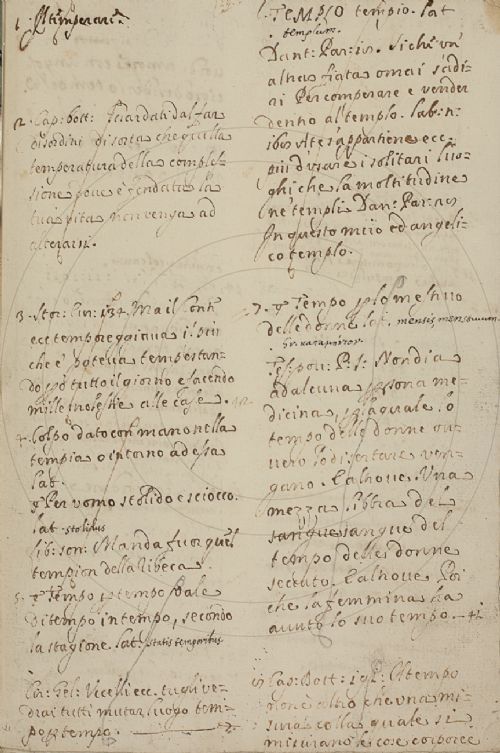 1. Attemperare.
2. Cap: bott: Guardati dal far
disordini di sorta che quella
temperatura della comples-
sione dove è fondata la
tua vita non venga ad
alterarsi.
3. Stor: Eur: 132. Ma il Conte
ecc temporeggiava il più
che e' poteva tempestan-
do poi tutto il giorno e facendo
mille molestie alle case.
4. Colpo dato con mano nella
tempia o intorno ad essa
lat.
¶ Per uomo stolido e sciocco.
lat. stolidus
lib: son: Manda fuor quel
tempion della ribeca.
5. ¶ Tempo per tempo vale
Di tempo in tempo, secondo
la stagione. lat. statis temporibus
Cir: Gel: Uccelli ecc. tu gli ve-
drai tutti mutar luogo tem-
po per tempo.
6. TEMPIO tempio. lat
templum.
Dant: Par: 18. Sì ch'un'
altra fiata omai s'adi-
ri Per comperare e vender
dentro al templo.
più durare i solitari luo-
ghi che la moltitudine
ne' templi. Dan: Par: 28
In questo miro ed angeli-
co templo.
7. ¶ Tempo per lo mestruo
delle donne. lat. mensis menstruum.
gr. καταμήνιον.
Tes: pov: P. S: Non dia
ad alcuna persona me-
dicina, per la quale lo
tempo delle donne ov-
vero lo disertare ven-
gano. E altrove. Una
mezza libbra del
sangue sangue del
tempo delle donne
seccato. E altrove Poi
che la femmina ha
avuto lo suo tempo.
Cap: Bott: Il tempo
non è altro che una mi-
sura colla quale si
misurano le cose corporee